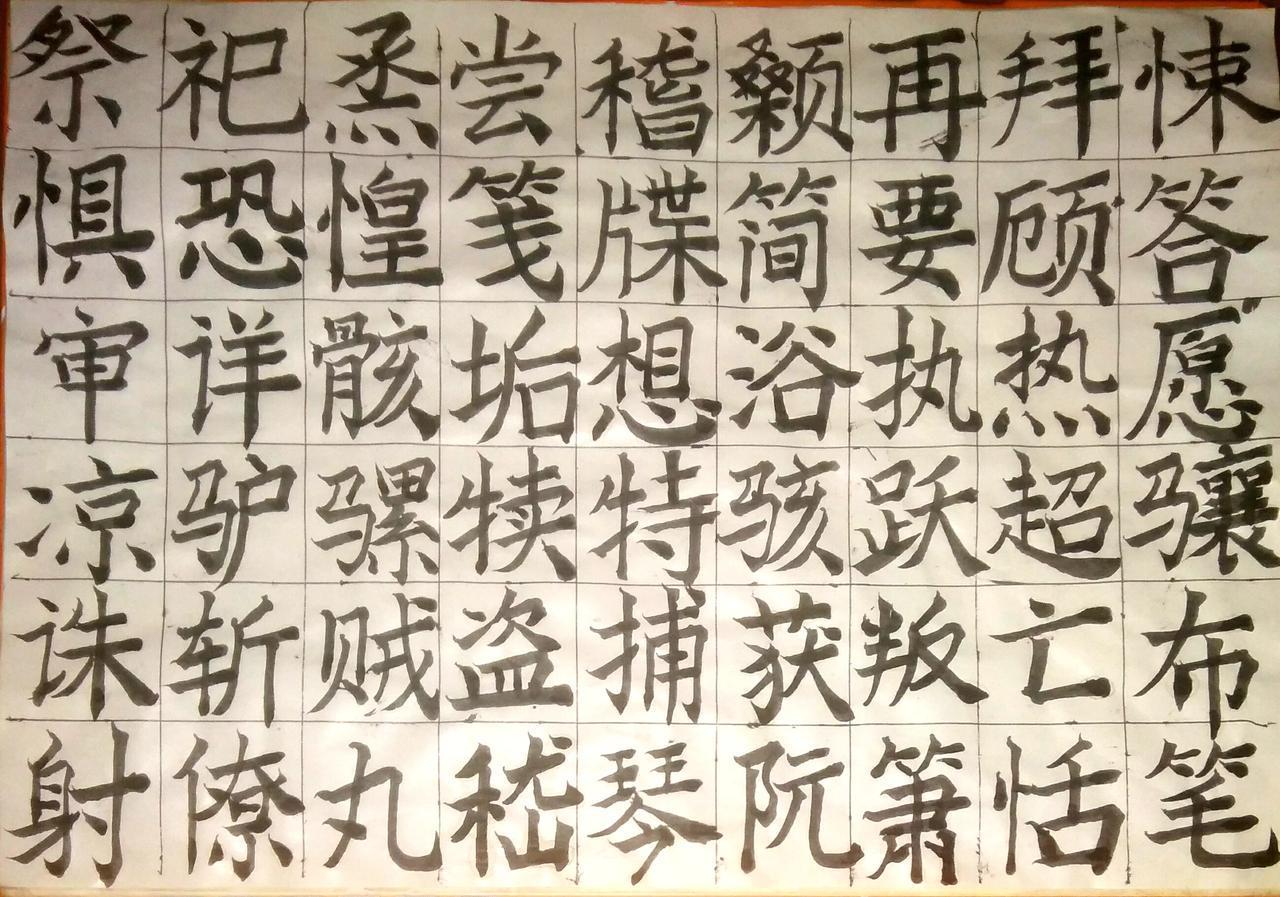 祭祀烝尝稽颡再拜悚
惧恐惶笺牒简要顾答
审详骸垢想浴执热愿
凉驴骡犊特骇跃超骧
诛斩贼盗捕获叛亡布
射僚丸嵇琴阮箫恬笔